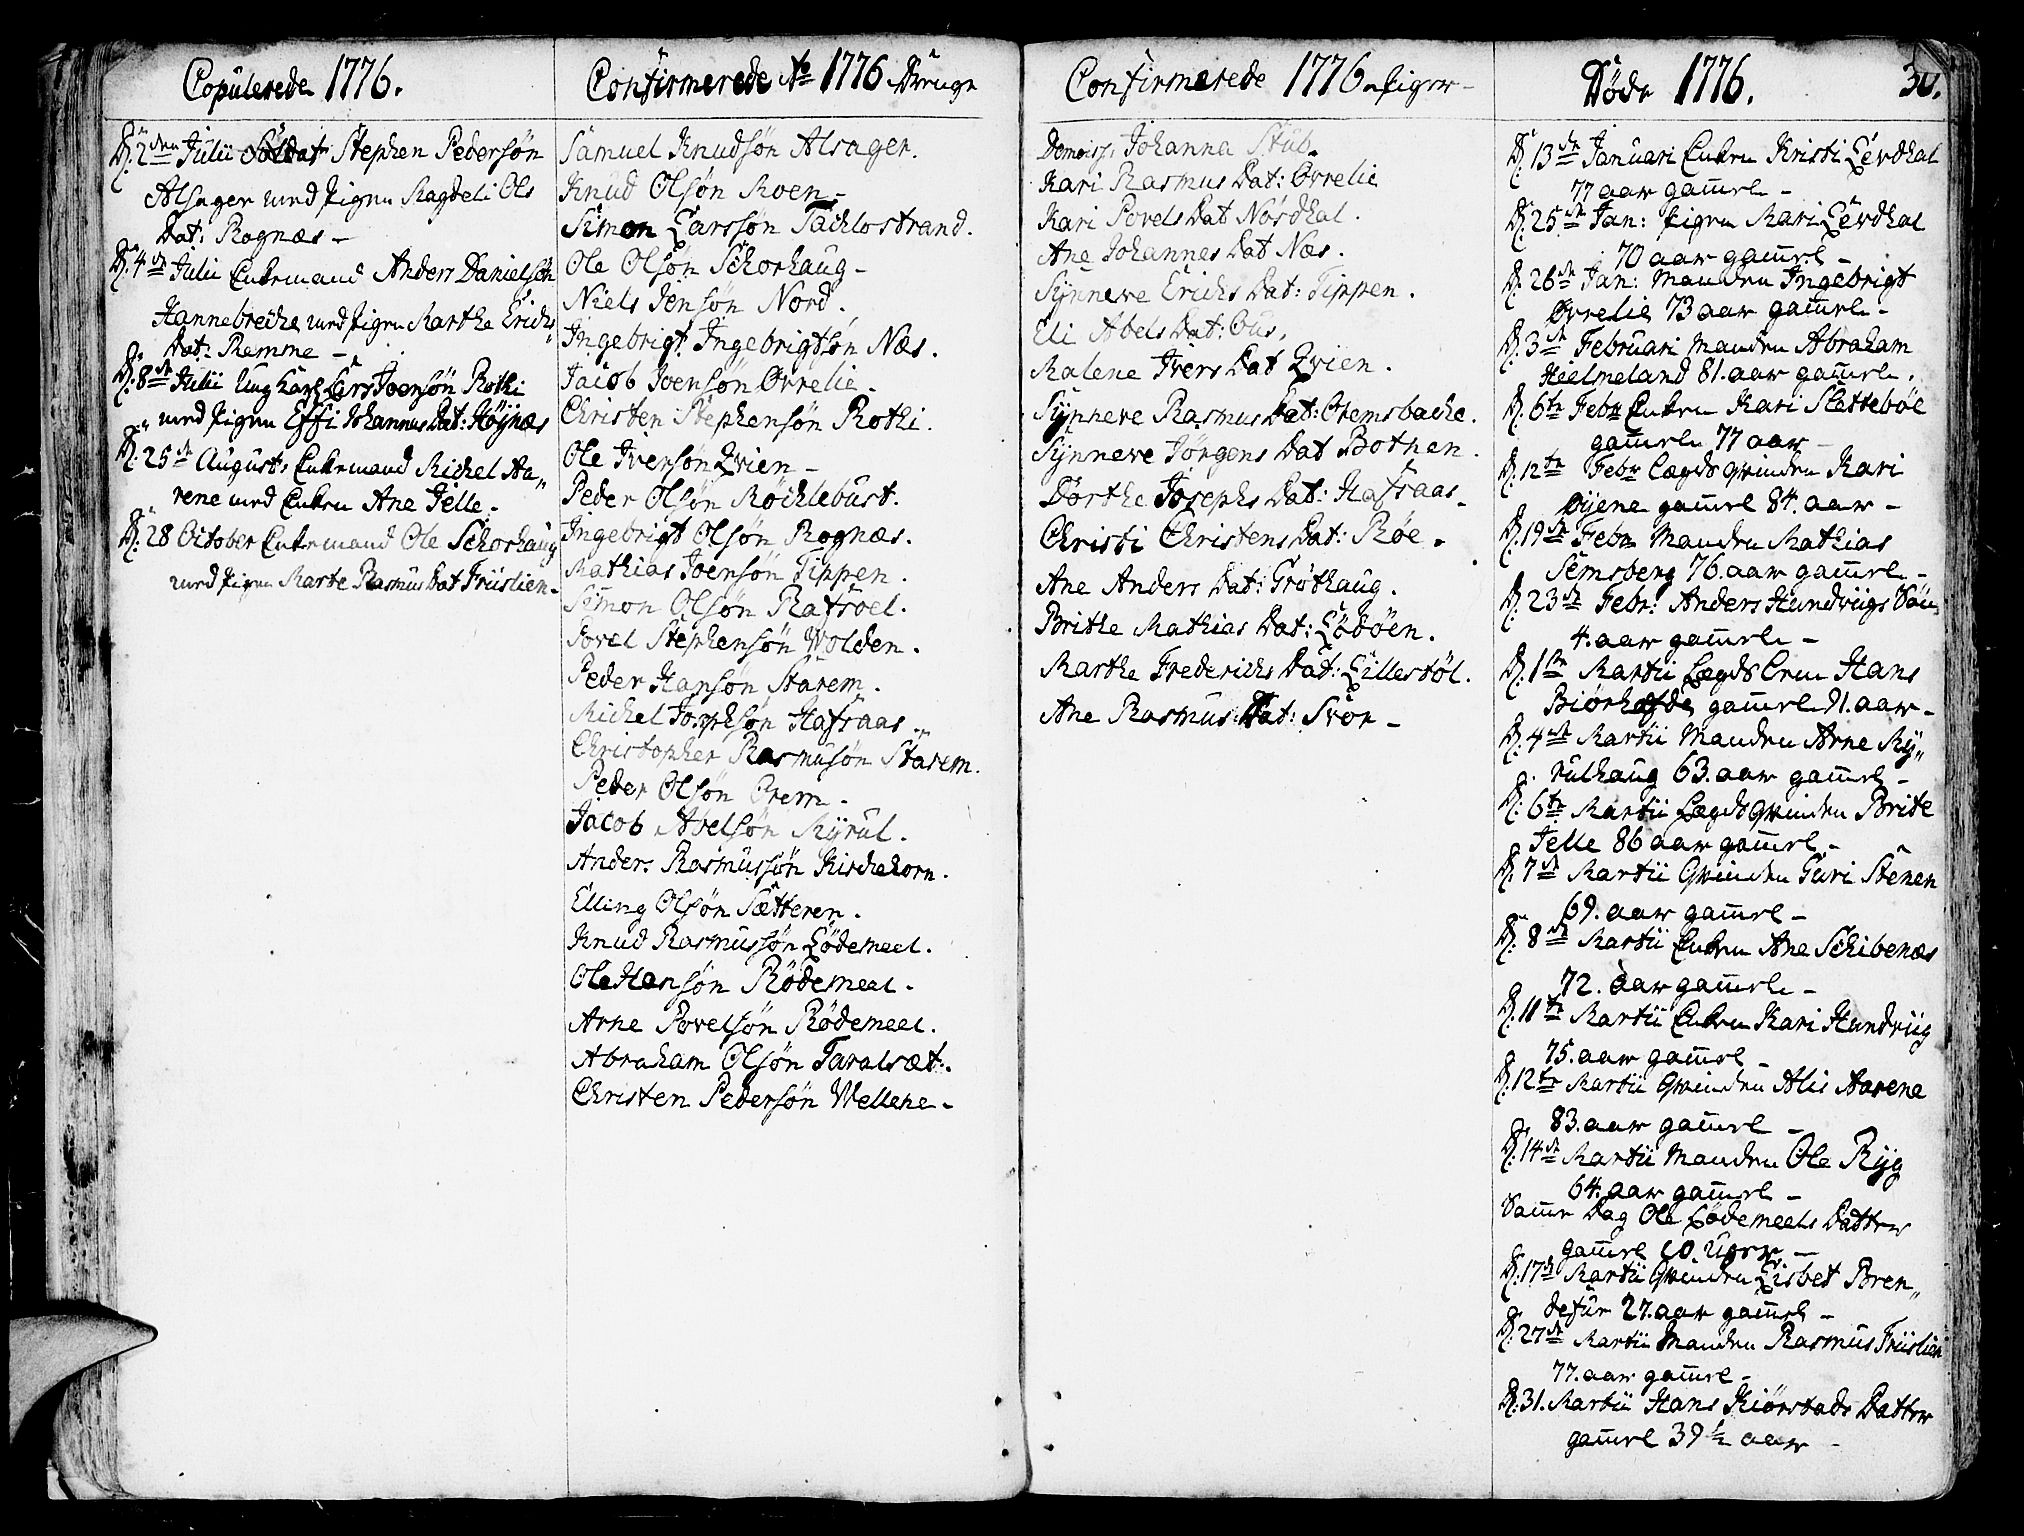 Copulerede 1776.
D: 2den Julii Soldat Stephen Pedersøn
Alsager med Pigen Magdeli Ols
Dat: Rognæs –
D: 4de Julii Enkemand Anders Danielsøn
Hannebreche med Pigen Marthe Erichs
Dat: Remme –
D: 8de Julii Ung Karl Lars Joensøn Rothi
med Pigen Effi Johannes Dat: Höÿnæs
D: 25de August: Enkemand Michel Aa„
rene med Enken Ane Felle.
D: 28 October Enkemand Ole Schorhaug
med Pigen Marte Rasmus Dat Friislien.
Confirmerede Ao 1776 Drenge
Samuel Knudsøn Alsager.
Knud Olsøn Moen –
Simon Larssøn Tachlostrand.
Ole Olsøn Schorhaug –
Niels Jensøn Nord.
Ingebrigt Ingebrigtsøn Næs.
Jacob Joensøn Øvrelie.
Christen Stephensøn Rothi.
Ole Iversøn Qvien –
Peder Olsøn Möchlebust.
Ingebrigt Olsøn Rognæs.
Mathias Joensøn Tippen.
Simon Olsøn Rafsoel.
Povel Stephensøn Wolden.
Peder Hansøn Starem.
Michel Josephsøn Hafsaas.
Christopher Rasmusøn Starem.
Peder Olsøn Orem –
Jacob Abelsøn Myrul.
Anders Rasmussøn Kirchehorn.
Elling Olsøn Sætteren.
Knud Rasmussøn Lödemeel.
Ole Hansøn Rödemeel.
Arne Povelsøn Rödemeel.
Abraham Olsøn Taralsæt.
Christen Pedersøn Wellene –
Confirmerede 1776 Piger –
Demois: Johanna Stub.
Kari Rasmus Dat: Øvrelie
Kari Povels Dat Nordhal.
Ane Johannes Dat Næs.
Synneve Erichs Dat: Tippen.
Eli Abels Dat: Ous.
Malene Ivers Dat Qvien.
Synneve Rasmus Dat: Oremsbache.
Synneve Jørgens Dat Bothen.
Dorthe Josephs Dat: Hafsaas –
Christi Christens Dat: Røe.
Ane Anders Dat: Grøthaug.
Brithe Mathias Dat: Lödöen.
Marthe Frederichs Dat: Lillestöl.
Ane Rasmus Dat: Svor –
Døde 1776.
30.
D: 13de Januari Enken Kristi Lerdhal
77 aar gamel –
D: 25de Jan: Pigen Mari Lerdhal
70 aar gamel –
D: 26de Jan: Manden Ingebrigt
Øvrelie 73 aar gamel –
D: 3de Februari Manden Abraham
Heelmeland 81. aar gamel.
D: 6te Febr Enken Kari Slettebøe
gamel 77 aar –
D: 12te Febr Lægds Qvinden Kari
Øyene gamel 84. aar –
D: 19de Febr Manden Mathias
Semsberg 76. aar gamel –
D: 23de Febr: Anders Hundviigs Søn
4. aar gamel –
D: 1ste Martii Lægds Lem Hans
Biørhofde gamel 91. aar –
D: 4de Martii Manden Arne My„
rulhaug 63. aar gamel –
D: 6te Martii Lægds Qvinden Brite
Felle 86 aar gamel –
D: 7de Martii Qvinden Guri Stenen
69. aar gamel –
D: 8de Martii Enken Ane Schibenæs
72. aar gamel –
D: 11te Martii Enken Kari Hundviig
75. aar gamel –
D: 12te Martii Qvinden Alis Aarene
83. aar gamel –
D: 14de Martii Manden Ole Ryg
64. aar gamel –
Same Dag Ole Lødemeels Datter
gamel 10. Uger –
D: 17de Martii Qvinden Lisbet Bren„
defur 27. aar gamel –
D: 27de Martii Manden Rasmus Friislien
77. aar gamel –
D: 31. Martii Hans Kiørstads Datter
gamel 39 ½ aar –